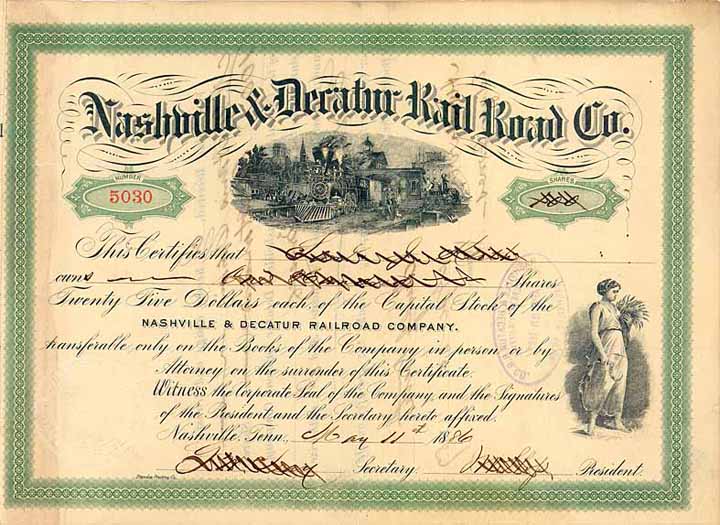 Nashville & Decatur Rail Road Co.
NUMBER
5030
SHARES
This Certifies that
owns Shares
Twenty Five Dollars each, of the Capital Stock of the
NASHVILLE & DECATUR RAILROAD COMPANY.
transferable only on the Books of the Company in person or by
Attorney on the surrender of this Certificate.
Witness the Corporate Seal of the Company, and the Signatures
of the President and the Secretary hereto affixed.
Nashville, Tenn., May 11th 1886
Secretary. President.